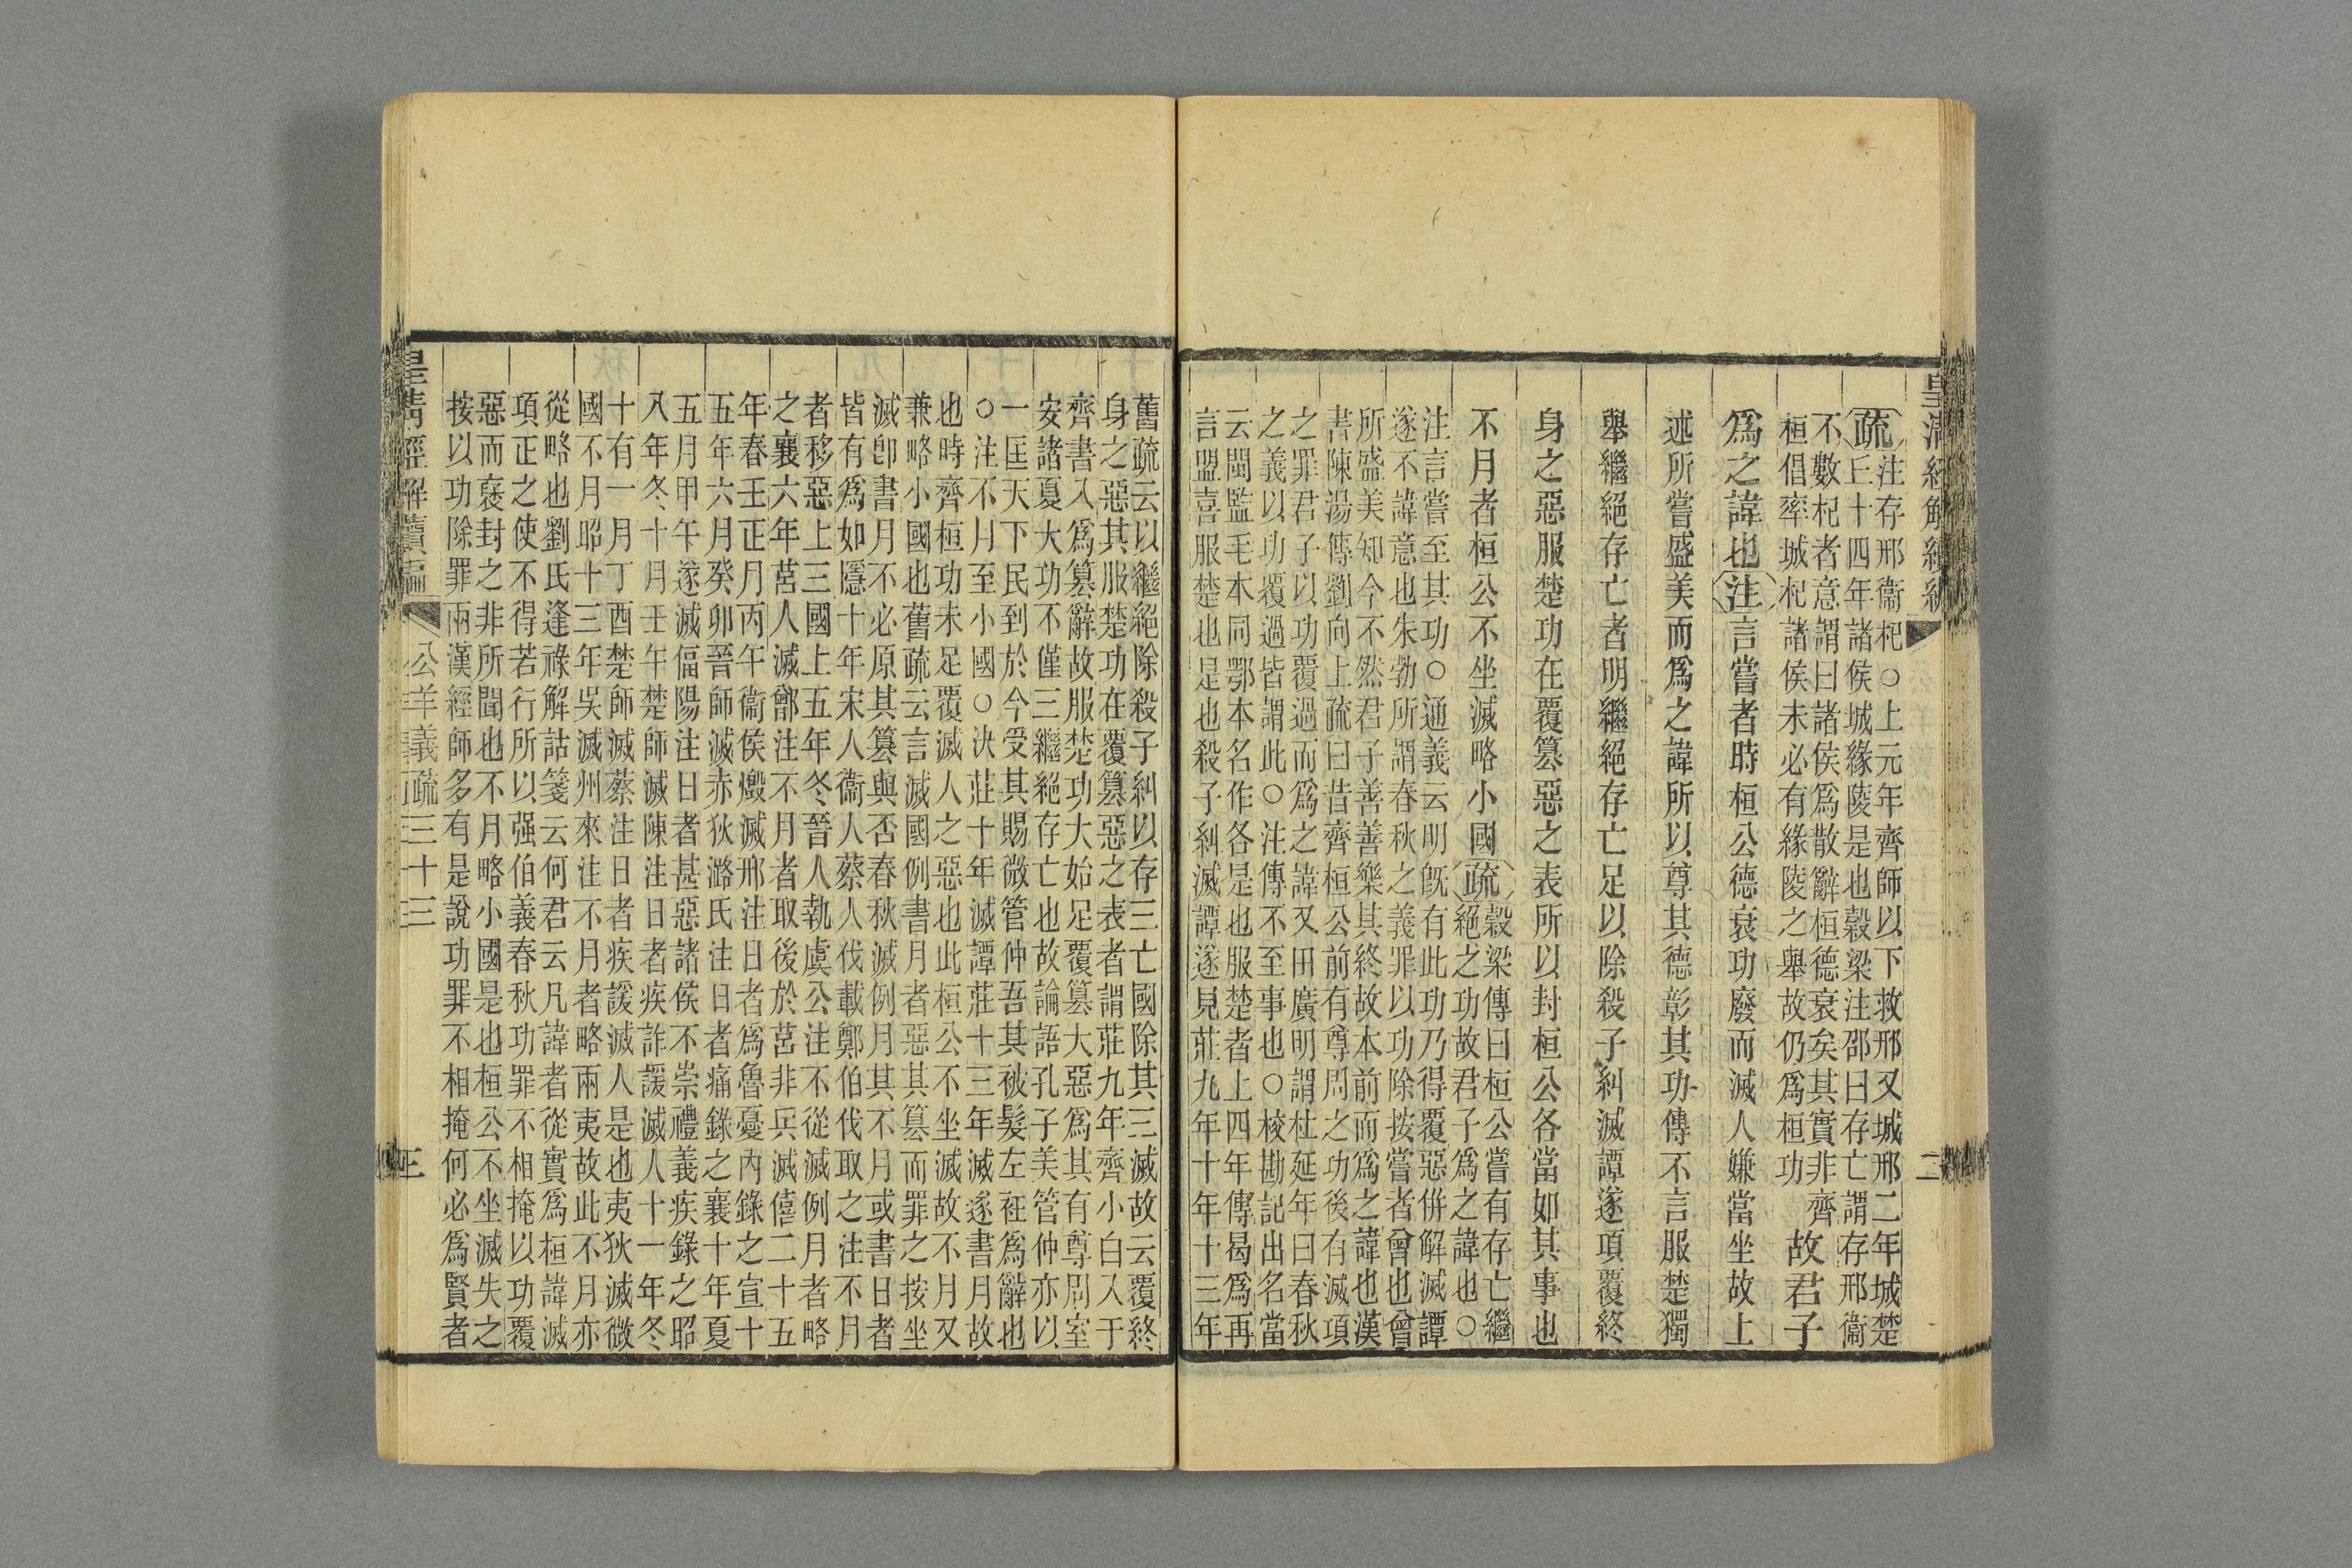 皇淸經解續編
二
疏注存邢衞杞○上元年齊師以下救邢又城邢二年城楚
丘十四年諸侯城緣陵是也穀梁注邵曰存亡謂存邢衞
不數杞者意謂曰諸侯爲散辭桓德衰矣其實非齊
桓倡率城杞諸侯未必有緣陵之舉故仍爲桓功
故君子
爲之諱也注言嘗者時桓公德衰功廢而滅人嫌當坐故上
述所嘗盛美而爲之諱所以尊其德彰其功傳不言服楚獨
舉繼絕存亡者明繼絕存亡足以除殺子糾滅譚遂項覆終
身之惡服楚功在覆簒惡之表所以封桓公各當如其事也
不月者桓公不坐滅略小國
疏穀梁傳曰桓公嘗有存亡繼
絕之功故君子爲之諱也○
注言嘗至其功○通義云明旣有此功乃得覆惡併解滅譚
遂不諱意也朱勃所謂春秋之義罪以功除按嘗者曾也曾
所盛美知今不然君子善善樂其終故本前而爲之諱也漢
書陳湯傳劉向上疏曰昔齊桓公前有尊周之功後有滅項
之罪君子以功覆過而爲之諱又田廣明謂杜延年曰春秋
之義以功覆過皆謂此○注傳不至事也○校勘記出名當
云閩監毛本同鄂本名作各是也服楚者上四年傳曷爲再
言盟喜服楚也是也殺子糾滅譚遂見莊九年十年十三年
舊疏云以繼絕除殺子糾以存三亡國除其三滅故云覆終
身之惡其服楚功在覆簒惡之表者謂莊九年齊小白入于
齊書入爲簒辭故服楚功大始足覆簒大惡爲其有尊周室
安諸夏大功不僅三繼絕存亡也故論語孔子美管仲亦以
一匡天下民到於今受其賜微管仲吾其被髮左衽爲辭也
○注不月至小國○決莊十年滅譚莊十三年滅遂書月故
也時齊桓功未足覆滅人之惡也此桓公不坐滅故不月又
兼略小國也舊疏云言滅國例書月者惡其簒而罪之按坐
滅卽書月不必原其簒與否春秋滅例月其不月或書日者
皆有爲如隱十年宋人衞人蔡人伐載鄭伯伐取之注不月
者移惡上三國上五年冬晉人執虞公注不從滅例月者略
之襄六年莒人滅鄫注不月者取後於莒非兵滅僖二十五
年春壬正月丙午衞侯燬滅邢注日者爲魯憂內錄之宣十
五年六月癸卯晉師滅赤狄潞氏注日者痛錄之襄十年夏
五月甲午遂滅偪陽注日者甚惡諸侯不崇禮義疾錄之昭
八年冬十月壬午楚師滅陳注日者疾詐諼滅人十一年冬
十有一月丁酉楚師滅蔡注日者疾諼滅人是也夷狄滅微
國不月昭十三年吳滅州來注不月者略兩夷故此不月亦
從略也劉氏逢祿解詁箋云何君云凡諱者從實爲桓諱滅
項正之使不得若行所以强伯義春秋功罪不相掩以功覆
惡而襃封之非所聞也不月略小國是也桓公不坐滅失之
按以功除罪兩漢經師多有是說功罪不相掩何必爲賢者
皇淸經解續編
公羊義疏三十三
三